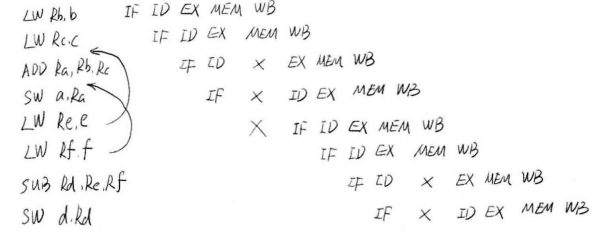 LW Rb,b IF ID EX MEM WB
LW Rc,c IF ID EX MEM WB
ADD Ra,Rb,Rc IF ID × EX MEM WB
SW a,Ra IF × ID EX MEM WB
LW Re,e × IF ID EX MEM WB
LW Rf,f IF ID EX MEM WB
SUB Rd,Re,Rf IF ID × EX MEM WB
SW d,Rd IF × ID EX MEM WB